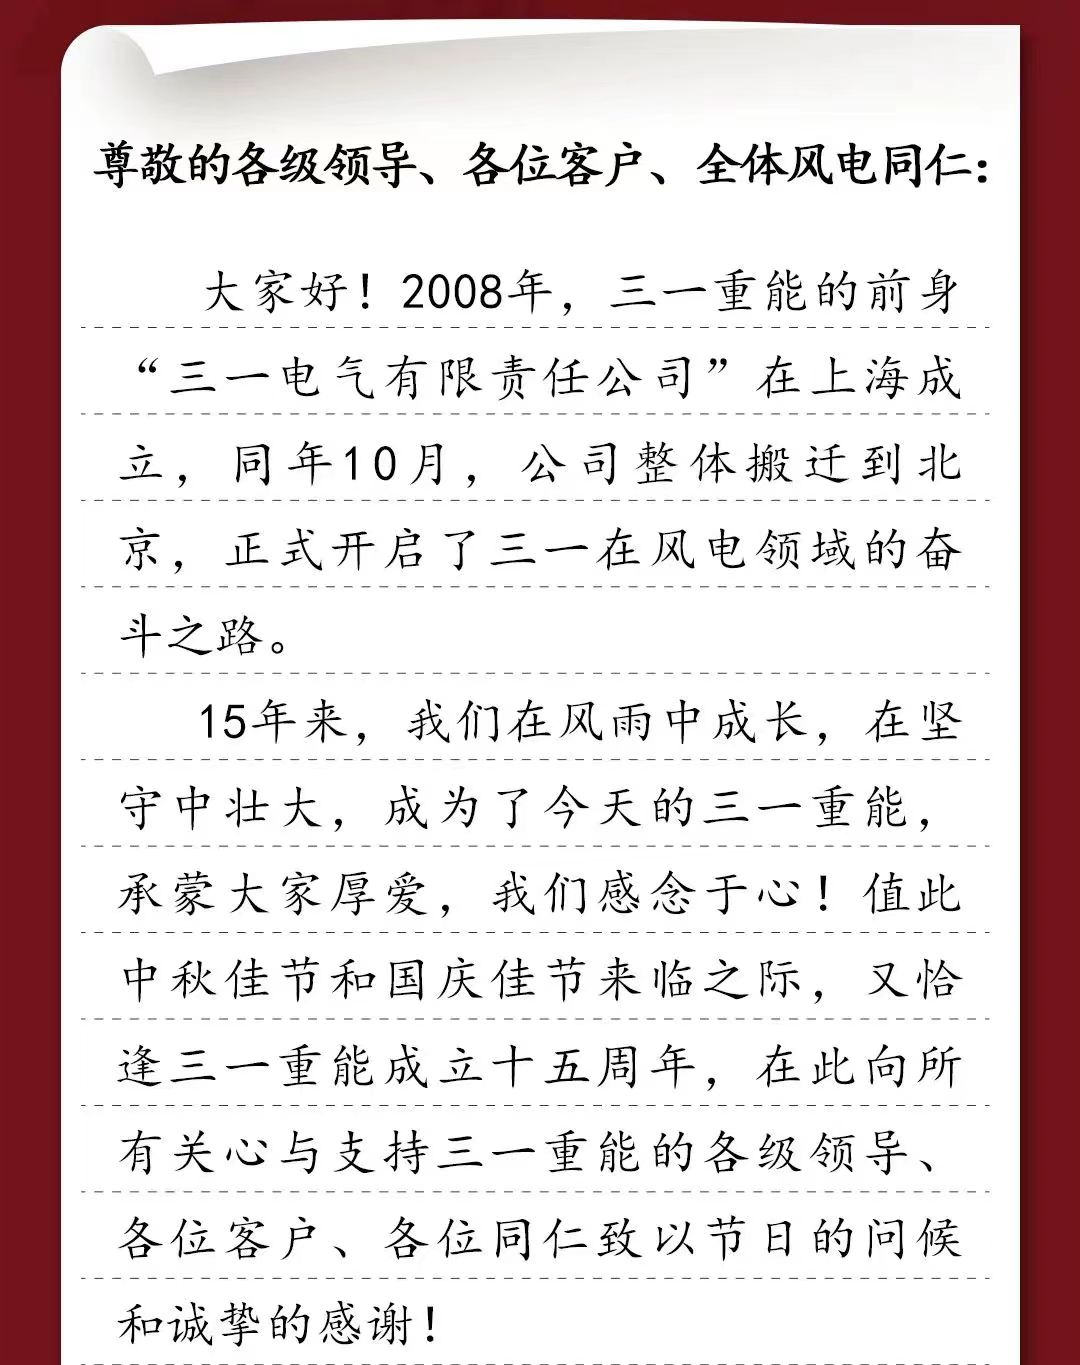 尊敬的各级领导、各位客户、全体风电同仁：
大家好！2008年，三一重能的前身
“三一电气有限责任公司”在上海成
立，同年10月，公司整体搬迁到北
京，正式开启了三一在风电领域的奋
斗之路。
15年来，我们在风雨中成长，在坚
守中壮大，成为了今天的三一重能，
承蒙大家厚爱，我们感念于心！值此
中秋佳节和国庆佳节来临之际，又恰
逢三一重能成立十五周年，在此向所
有关心与支持三一重能的各级领导、
各位客户、各位同仁致以节日的问候
和诚挚的感谢！